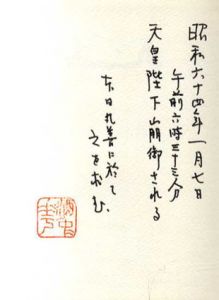 昭和六十四年一月七日
午前六時三十三分
天皇陛下崩御される
本日丸善に於て
之を求む